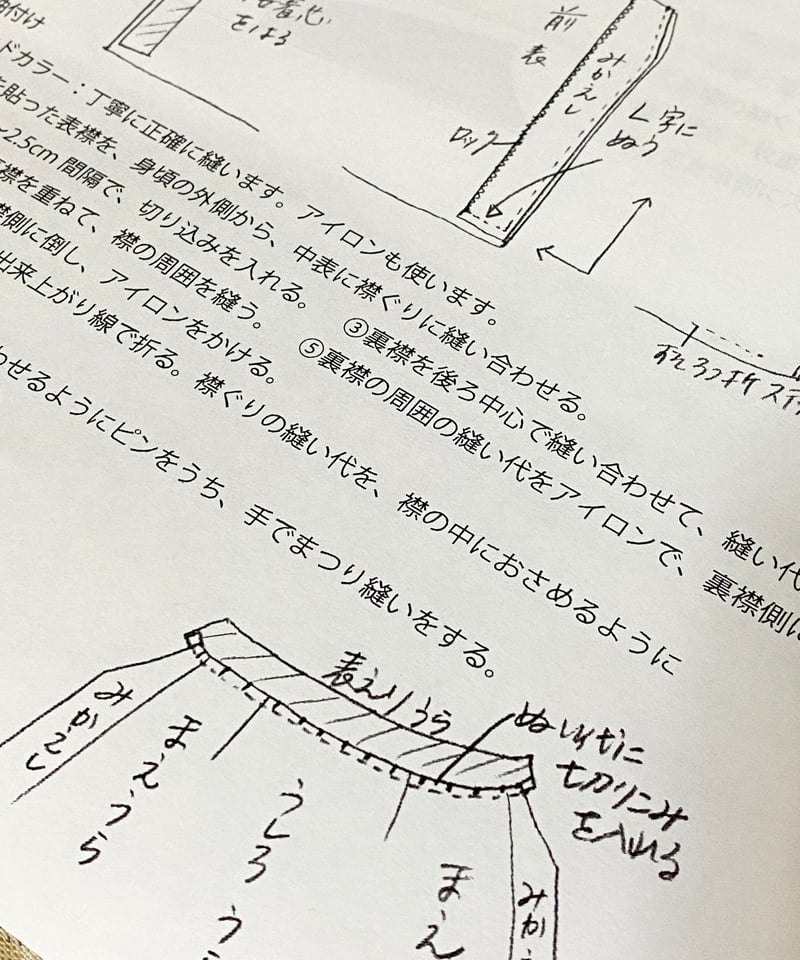 袖付け
接着芯
をはる
前
表
みかえし
ロック
L字に
ぬう
ドカラー：丁寧に正確に縫います。アイロンも使います。
を貼った表襟を、身頃の外側から、中表に襟ぐりに縫い合わせる。
～2.5cm 間隔で、切り込みを入れる。　③裏襟を後ろ中心で縫い合わせて、縫い代
襟を重ねて、襟の周囲を縫う。　⑤裏襟の周囲の縫い代をアイロンで、裏襟側に
襟側に倒し、アイロンをかける。
出来上がり線で折る。襟ぐりの縫い代を、襟の中におさめるように
わせるようにピンをうち、手でまつり縫いをする。
表えりうら
ぬいしろに
切りこみ
を入れる
みかえし
まえうら
うしろ う
まえ
みか